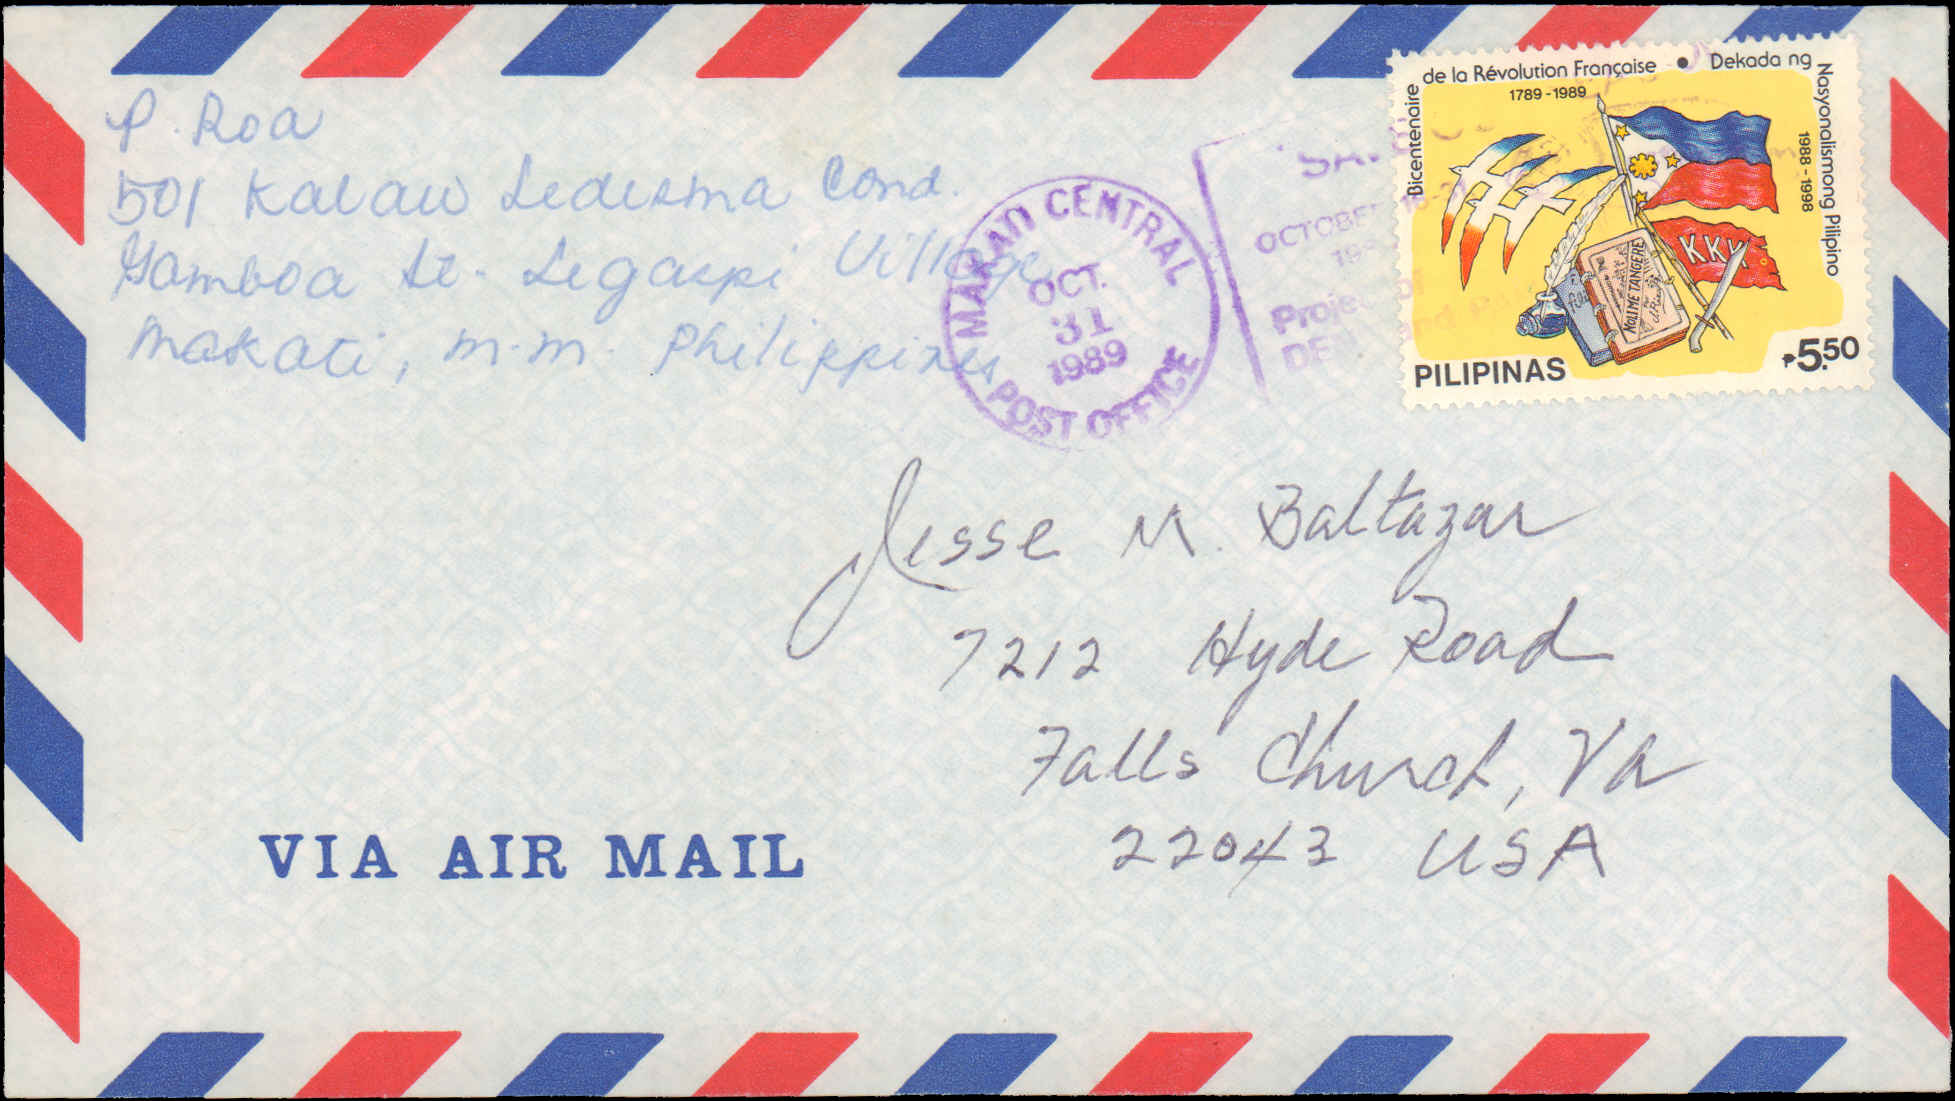 P. Roa
501 Kalaw Ledesma Cond.
Gamboa St. Legaspi Village
Makati, M.M. Philippines
MAKATI CENTRAL
OCT.
31
1989
POST OFFICE
OCTOBER 16-31
Project of
Bicentenaire de la Révolution Française • Dekada ng Nasyonalismong Pilipino
1789-1989
1988-1998
KKK
NOLI ME TANGERE
PILIPINAS
₱5.50
Jesse M. Baltazar
7212 Hyde Road
Falls Church, Va
22043 USA
VIA AIR MAIL